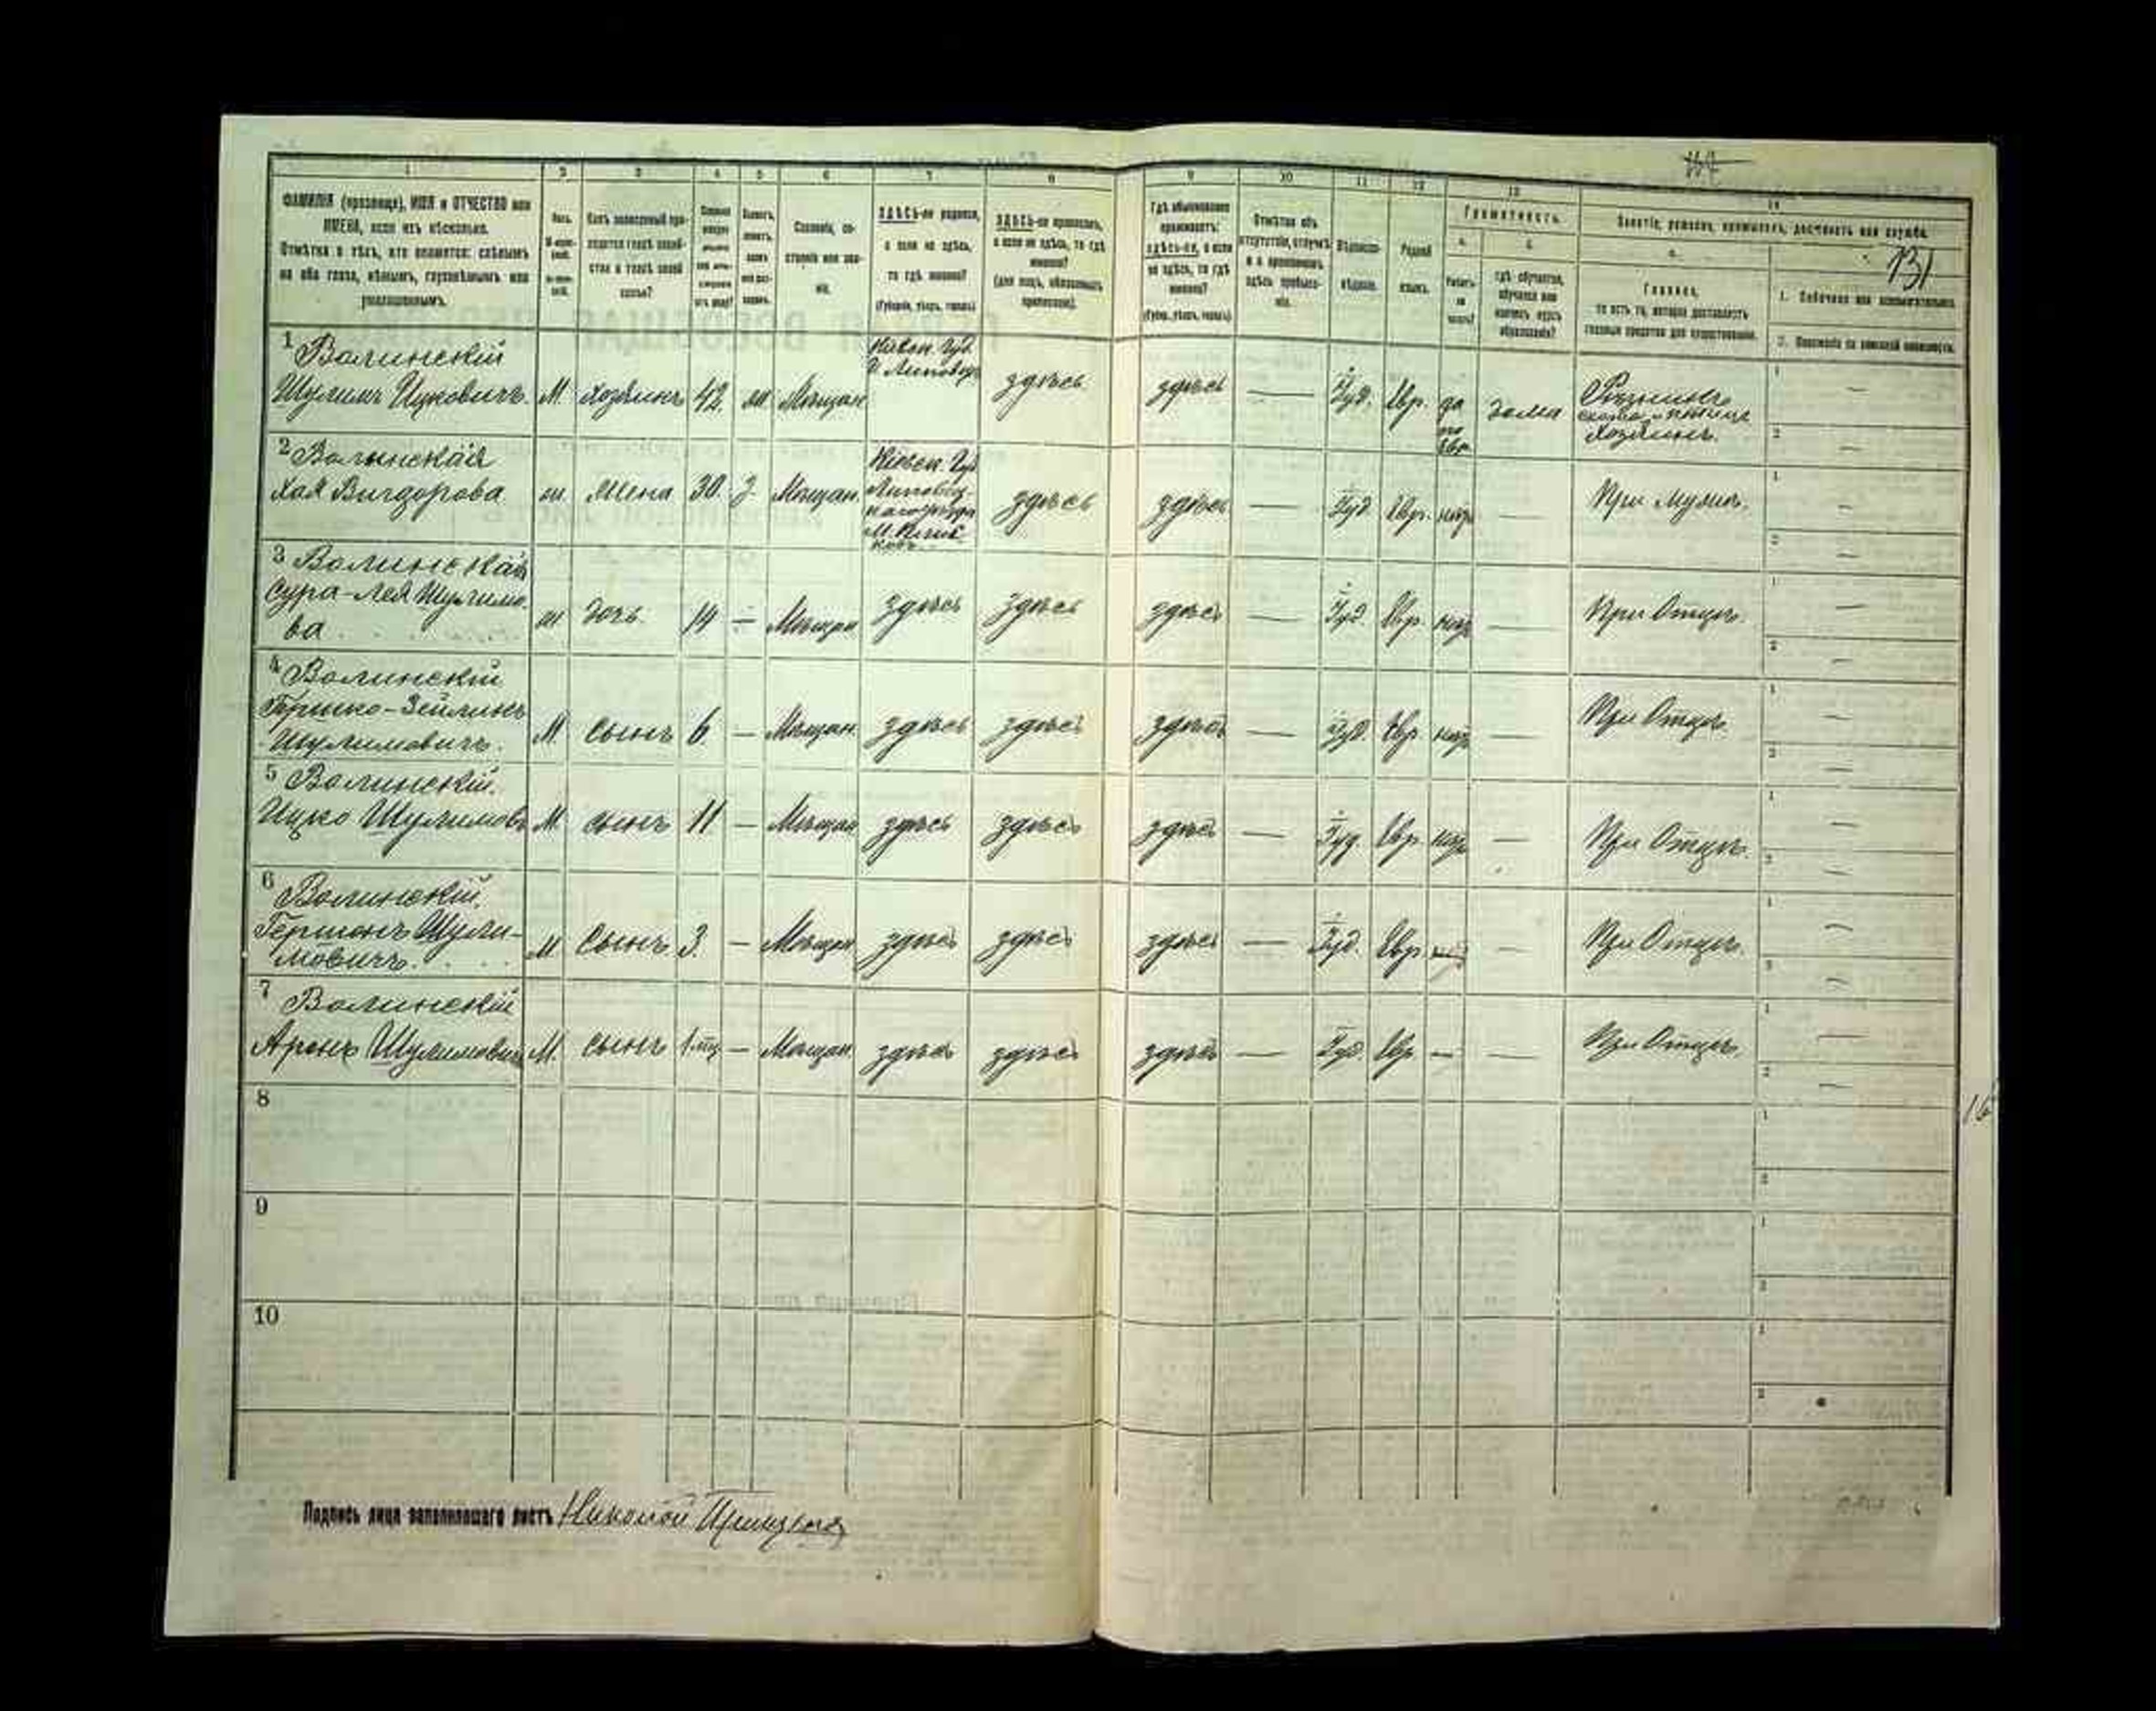 1 2 3 4 5 6 7 8 9 10 11 12 13 14
ФАМИЛІЯ (прозвище), ИМЯ и ОТЧЕСТВО или
ИМЕНА, если ихъ нѣсколько.
Отмѣтка о тѣхъ, кто окажется: слѣпымъ
на оба глаза, нѣмымъ, глухонѣмымъ или
умалишеннымъ.
Полъ.
Какъ записанный при-
ходится главѣ хозяй-
ства и главѣ своей
семьи?
Сословіе, со-
стояніе или зва-
ніе.
ЗДѢСЬ-ли родился,
а если не здѣсь,
то гдѣ именно?
(Губернія, уѣздъ, городъ)
ЗДѢСЬ-ли приписанъ,
а если не здѣсь, то гдѣ
именно?
(для лицъ, обязанныхъ
припискою).
Гдѣ обыкновенно
проживаетъ:
здѣсь-ли, а если
не здѣсь, то гдѣ
именно?
(Губер., уѣздъ, городъ)
Отмѣтка объ
отсутствіи, отлучкѣ
и о временномъ
здѣсь пребыва-
ніи.
Вѣроиспо-
вѣданіе.
Родной
языкъ.
Грамотность.
а.
Умѣетъ-
ли
читать?
б.
гдѣ обучается,
обучался или
кончилъ курсъ
образованія?
Занятіе, ремесло, промыселъ, должность или служба.
а.
Главное,
то есть то, которое доставляетъ
главныя средства для существованія.
131
1. Побочное или вспомогательное.
2. Положеніе по воинской повинности.
1 Волинскій
Шулимъ Ицковичъ. М. Хозяинъ 42. ж Мѣщан. Кіевск. Губ. Г. Липовецъ здѣсь здѣсь — Іуд. Евр. да по Евр. дома Хозяинъ. 1 — 2 —
2 Волинская
Хая Вигдорова ж. Жена 30. З. Мѣщан. Кіевск. Губ. здѣсь здѣсь — Іуд. Евр. нѣт — При мужѣ. 1 — 2 —
3 Волинская
Сура-Лея Шулимо-
ва ж. дочь. 14 — Мѣщан здѣсь здѣсь здѣсь — Іуд. Евр. нѣт — При Отцѣ. 1 — 2 —
4 Волинскій
Гершко-Зейлинъ
Шулимовичъ. М. сынъ 6. — Мѣщан. здѣсь здѣсь здѣсь — Іуд. Евр нѣт — При Отцѣ. 1 — 2 —
5 Волинскій.
Ицко Шулимов М. сынъ 11 — Мѣщан. здѣсь здѣсь здѣсь — Іуд. Евр. нѣт — При Отцѣ. 1 — 2 —
6 Волинскій.
Гершонъ Шули-
мовичъ. М. Сынъ 3. — Мѣщан. здѣсь здѣсь здѣсь — Іуд. Евр. — При Отцѣ. 1 — 2 —
7 Волинскій
Аронъ Шулимович М. сынъ — Мѣщан. здѣсь здѣсь здѣсь — Іуд. Евр. — — При Отцѣ. 1 — 2 —
8 1 2
16
9 1 2
10 1 2
Подпись лица заполнявшаго листъ Николай